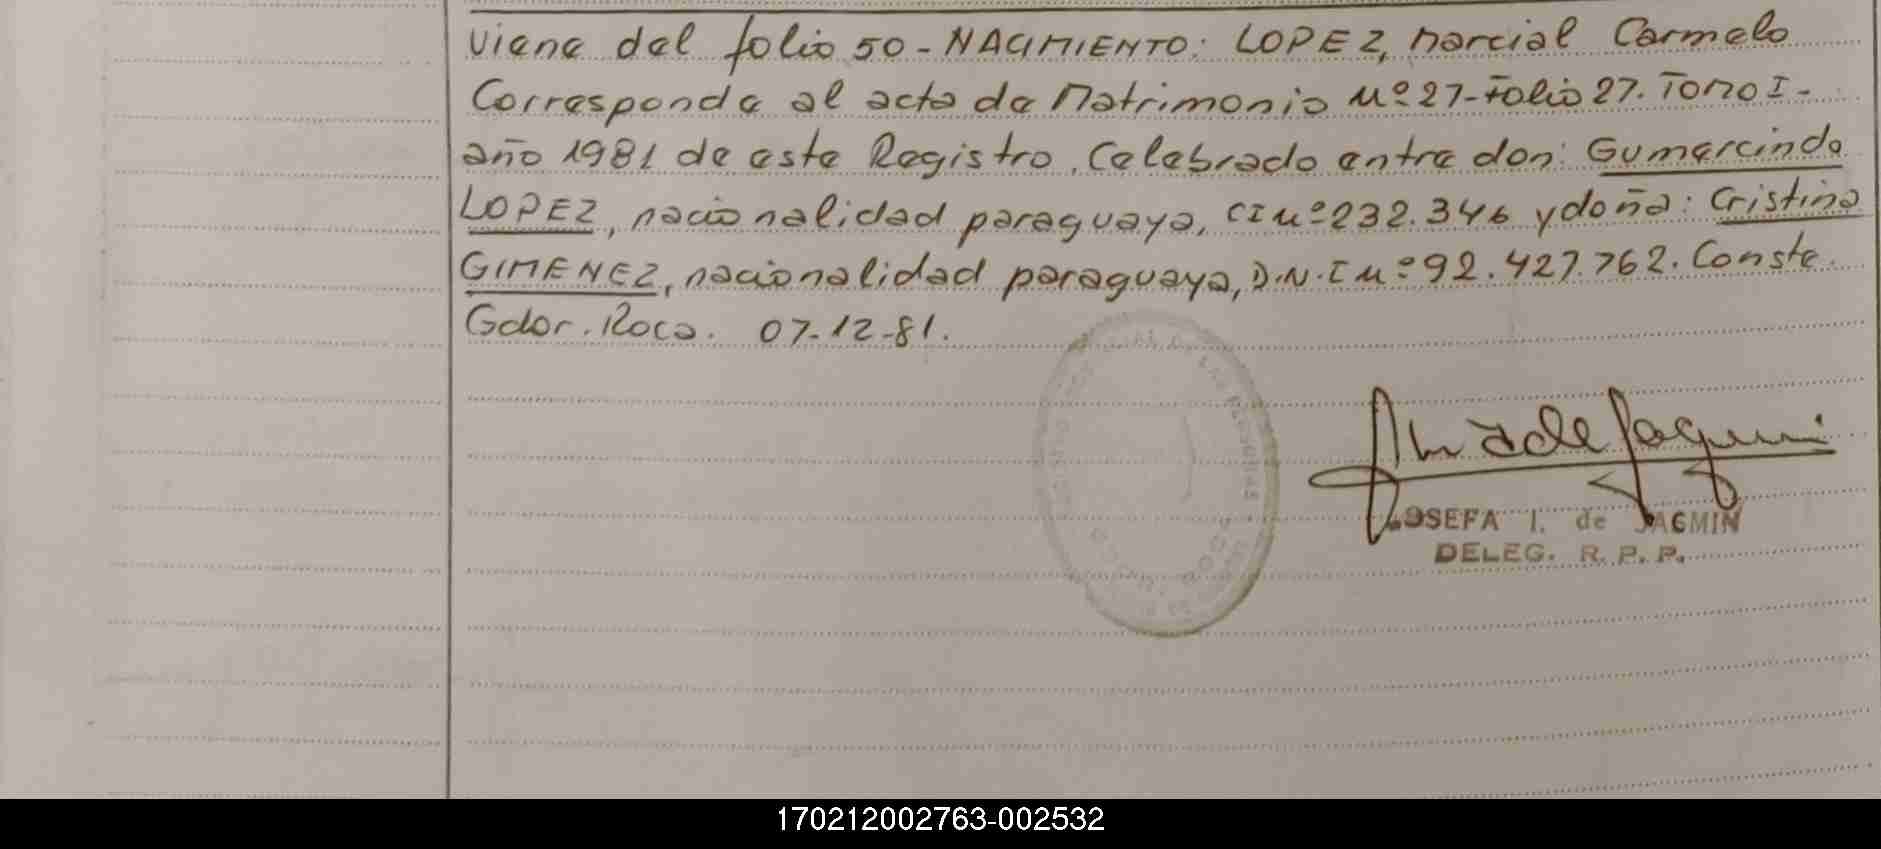 Viene del folio 50 - NACIMIENTO: LOPEZ, Marcial Carmelo
Corresponde al acta de Matrimonio Nº 27 - Folio 27. TOMO I -
año 1981 de este Registro, Celebrado entre don: Gumercindo
LOPEZ, nacionalidad paraguaya, CI Nº 232.346 y doña: Cristina
GIMENEZ, nacionalidad paraguaya, D.N.I Nº 92.427.762. Conste.
Gdor. Roca. 07-12-81.
JOSEFA I. de JAGMIN
DELEG. R. P. P.
170212002763-002532